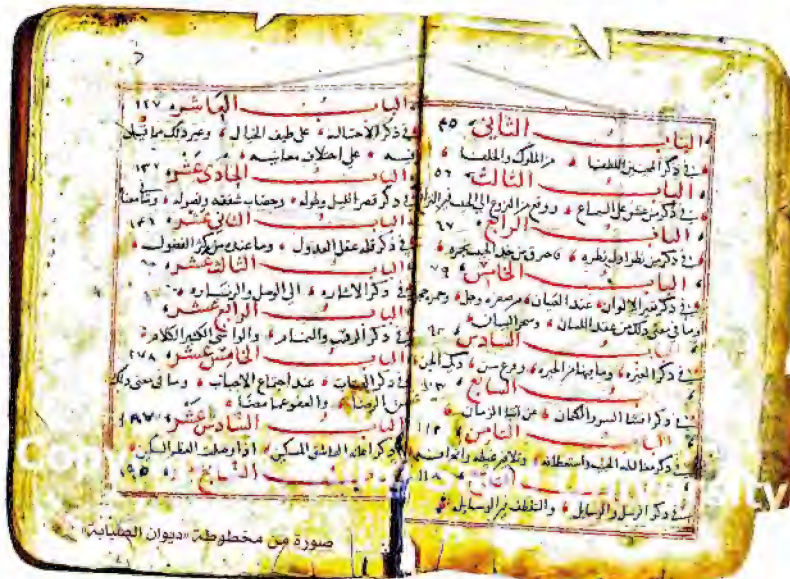 الباب الثاني ٤٥
في ذكر المحبين اللطفا من الملوك والخلفا
الباب الثالث ٥٦
في ذكر من عشق على السماع ووقع من النزوع الى الحبيب في النزاع
الباب الرابع ٦٧
في ذكر من نظر اول نظره فاحترق من خد الحبيب بجمره
الباب الخامس ٧٩
في ذكر تغير الالوان عند العيان من صفره وجل وحمره خجل
وما في معنى ذلك من عقد اللسان وسحر البيان
الباب السادس ٩٢
في ذكر الغيره وما فيها من الحيره
الباب السابع ١٠٣
في ذكر افشا السر والكتمان عن ابنا الزمان
الباب الثامن ١١٢
في ذكر مغالطه الحبيب واستعطافه وتلافي غيظه وانحرافه
الباب التاسع ١١٨
في ذكر الرسل والرسايل والتلطف في الوسايل
الباب العاشر ١٢٧
في ذكر الاحتيال على طيف الخيال وغير ذلك مما قيل
فيه على اختلاف معانيه
الباب الحادي عشر ١٣٢
في ذكر قصر الليل وطوله وخضاب شفقه ونصوله وما في معنا
الباب الثاني عشر ١٤٦
في ذكر قله عقل العذول وما عنده من كثره الفضول
الباب الثالث عشر
في ذكر الاشاره الى الوصل والزياره
الباب الرابع عشر
في ذكر الرقيب والنمام والواشي الكثير الكلام
الباب الخامس عشر ١٧٨
في ذكر العتاب عند اجتماع الاحباب وما في معنى ذلك
من الرضا والعفو عما مضا
الباب السادس عشر ١٨٧
في ذكر اغاثه العاشق المسكين اذا وصلت العظم السكين
الباب السابع ١٩٥
صورة من مخطوطة «ديوان الصبابة»